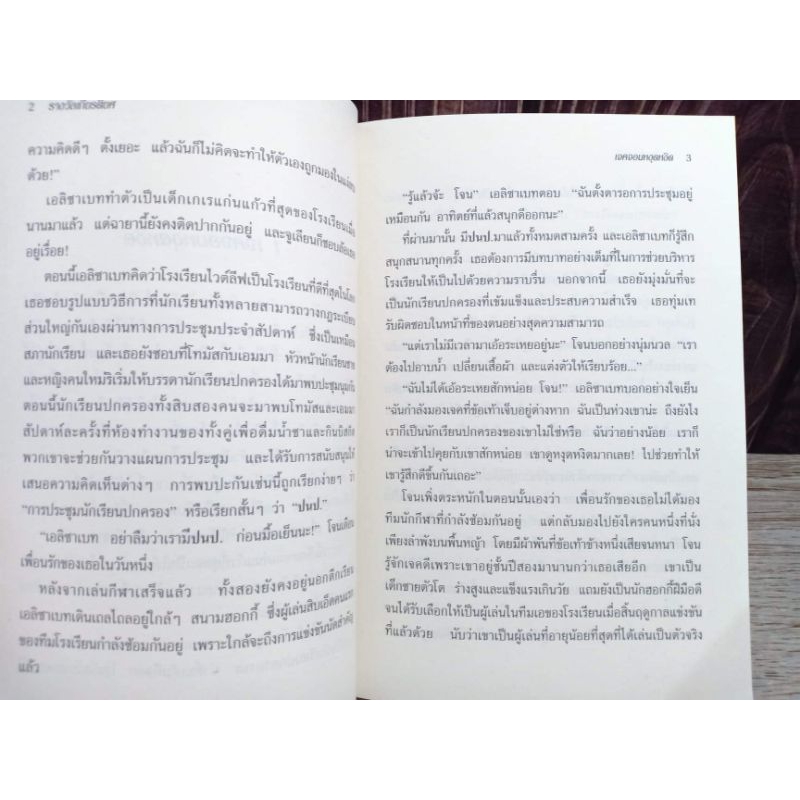 2 รางวัลเกียรติยศ
ความคิดดีๆ ตั้งเยอะ แล้วฉันก็ไม่คิดจะทำให้ตัวเองถูกมองในแง่
ด้วย!”
เอลิซาเบททำตัวเป็นเด็กเกเรแก่นแก้วที่สุดของโรงเรียนเมื่อ
นานมาแล้ว แต่ฉายานี้ยังคงติดปากกันอยู่ และจูเลียนก็ชอบล้อเธอ
อยู่เรื่อย!
ตอนนี้เอลิซาเบทคิดว่าโรงเรียนไวต์ลีฟเป็นโรงเรียนที่ดีที่สุดในโลก
เธอชอบรูปแบบวิธีการที่นักเรียนทั้งหลายสามารถวางกฎระเบียบ
ส่วนใหญ่กันเองผ่านทางการประชุมประจำสัปดาห์ ซึ่งเป็นเหมือน
สภานักเรียน และเธอยังชอบที่โทมัสกับเอมมา หัวหน้านักเรียนชาย
และหญิงคนใหม่ริเริ่มให้บรรดานักเรียนปกครองได้มาพบประชุมนุมกัน
ตอนนี้นักเรียนปกครองทั้งสิบสองคนจะมาพบโทมัสและเอมมา
สัปดาห์ละครั้งที่ห้องทำงานของทั้งคู่เพื่อดื่มน้ำชาและกินบิสกิต
พวกเขาจะช่วยกันวางแผนการประชุม และได้รับการสนับสนุนให้
เสนอความคิดเห็นต่างๆ การพบปะกันเช่นนี้ถูกเรียกง่ายๆ ว่า
“การประชุมนักเรียนปกครอง” หรือเรียกสั้นๆ ว่า “ปนป.”
“เอลิซาเบท อย่าลืมว่าเรามีปนป. ก่อนมื้อเย็นนะ!” โจนเตือน
เพื่อนรักของเธอในวันหนึ่ง
หลังจากเล่นกีฬาเสร็จแล้ว ทั้งสองยังคงอยู่นอกตึกเรียน
เอลิซาเบทเดินเถลไถลอยู่ใกล้ๆ สนามฮอกกี้ ซึ่งผู้เล่นสิบเอ็ดคนแรก
ของทีมโรงเรียนกำลังซ้อมกันอยู่ เพราะใกล้จะถึงการแข่งขันนัดสำคัญ
แล้ว
เจคจอมหงุดหงิด 3
“รู้แล้วจ้ะ โจน” เอลิซาเบทตอบ “ฉันตั้งตารอการประชุมอยู่
เหมือนกัน อาทิตย์ที่แล้วสนุกดีออกนะ”
ที่ผ่านมานั้น มีปนป.มาแล้วทั้งหมดสามครั้ง และเอลิซาเบทก็รู้สึก
สนุกสนานทุกครั้ง เธอต้องการมีบทบาทอย่างเต็มที่ในการช่วยบริหาร
โรงเรียนให้เป็นไปด้วยความราบรื่น นอกจากนี้ เธอยังมุ่งมั่นที่จะ
เป็นนักเรียนปกครองที่เข้มแข็งและประสบความสำเร็จ เธอทุ่มเท
รับผิดชอบในหน้าที่ของตนอย่างสุดความสามารถ
“แต่เราไม่มีเวลามาเอ้อระเหยอยู่นะ” โจนบอกอย่างนุ่มนวล “เรา
ต้องไปอาบน้ำ เปลี่ยนเสื้อผ้า และแต่งตัวให้เรียบร้อย...”
“ฉันไม่ได้เอ้อระเหยสักหน่อย โจน!” เอลิซาเบทบอกอย่างใจเย็น
“ฉันกำลังมองเจคที่ข้อเท้าเจ็บอยู่ต่างหาก ฉันเป็นห่วงเขาน่ะ ถึงยังไง
เราก็เป็นนักเรียนปกครองของเขาไม่ใช่หรือ ฉันว่าอย่างน้อย เราก็
น่าจะเข้าไปคุยกับเขาสักหน่อย เขาดูหงุดหงิดมากเลย! ไปช่วยทำให้
เขารู้สึกดีขึ้นกันเถอะ”
โจนเพิ่งตระหนักในตอนนั้นเองว่า เพื่อนรักของเธอไม่ได้มอง
ทีมนักกีฬาที่กำลังซ้อมกันอยู่ แต่กลับมองไปยังใครคนหนึ่งที่นั่ง
เพียงลำพังบนพื้นหญ้า โดยมีผ้าพันที่ข้อเท้าข้างหนึ่งเสียจนหนา โจน
รู้จักเจคดีเพราะเขาอยู่ชั้นปีสองมานานกว่าเธอเสียอีก เขาเป็น
เด็กชายตัวโต ร่างสูงและแข็งแรงเกินวัย แถมยังเป็นนักฮอกกี้ฝีมือดี
จนได้รับเลือกให้เป็นผู้เล่นในทีมเอของโรงเรียนเมื่อสิ้นฤดูกาลแข่งขัน
ที่แล้วด้วย นับว่าเขาเป็นผู้เล่นที่อายุน้อยที่สุดที่ได้เล่นเป็นตัวจริง